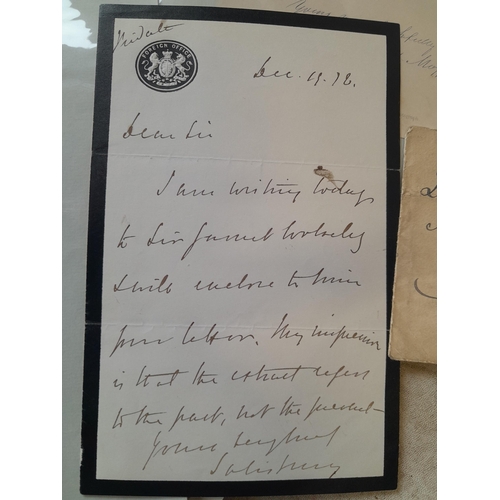 Private
FOREIGN OFFICE
Dec. 19. 78.
Dear Sir
I am writing today
to Sir Garnet Wolseley
& will enclose to him
your letter. My impression
is that the extract refers
to the past, not the present -
Yours
Salisbury
Yours